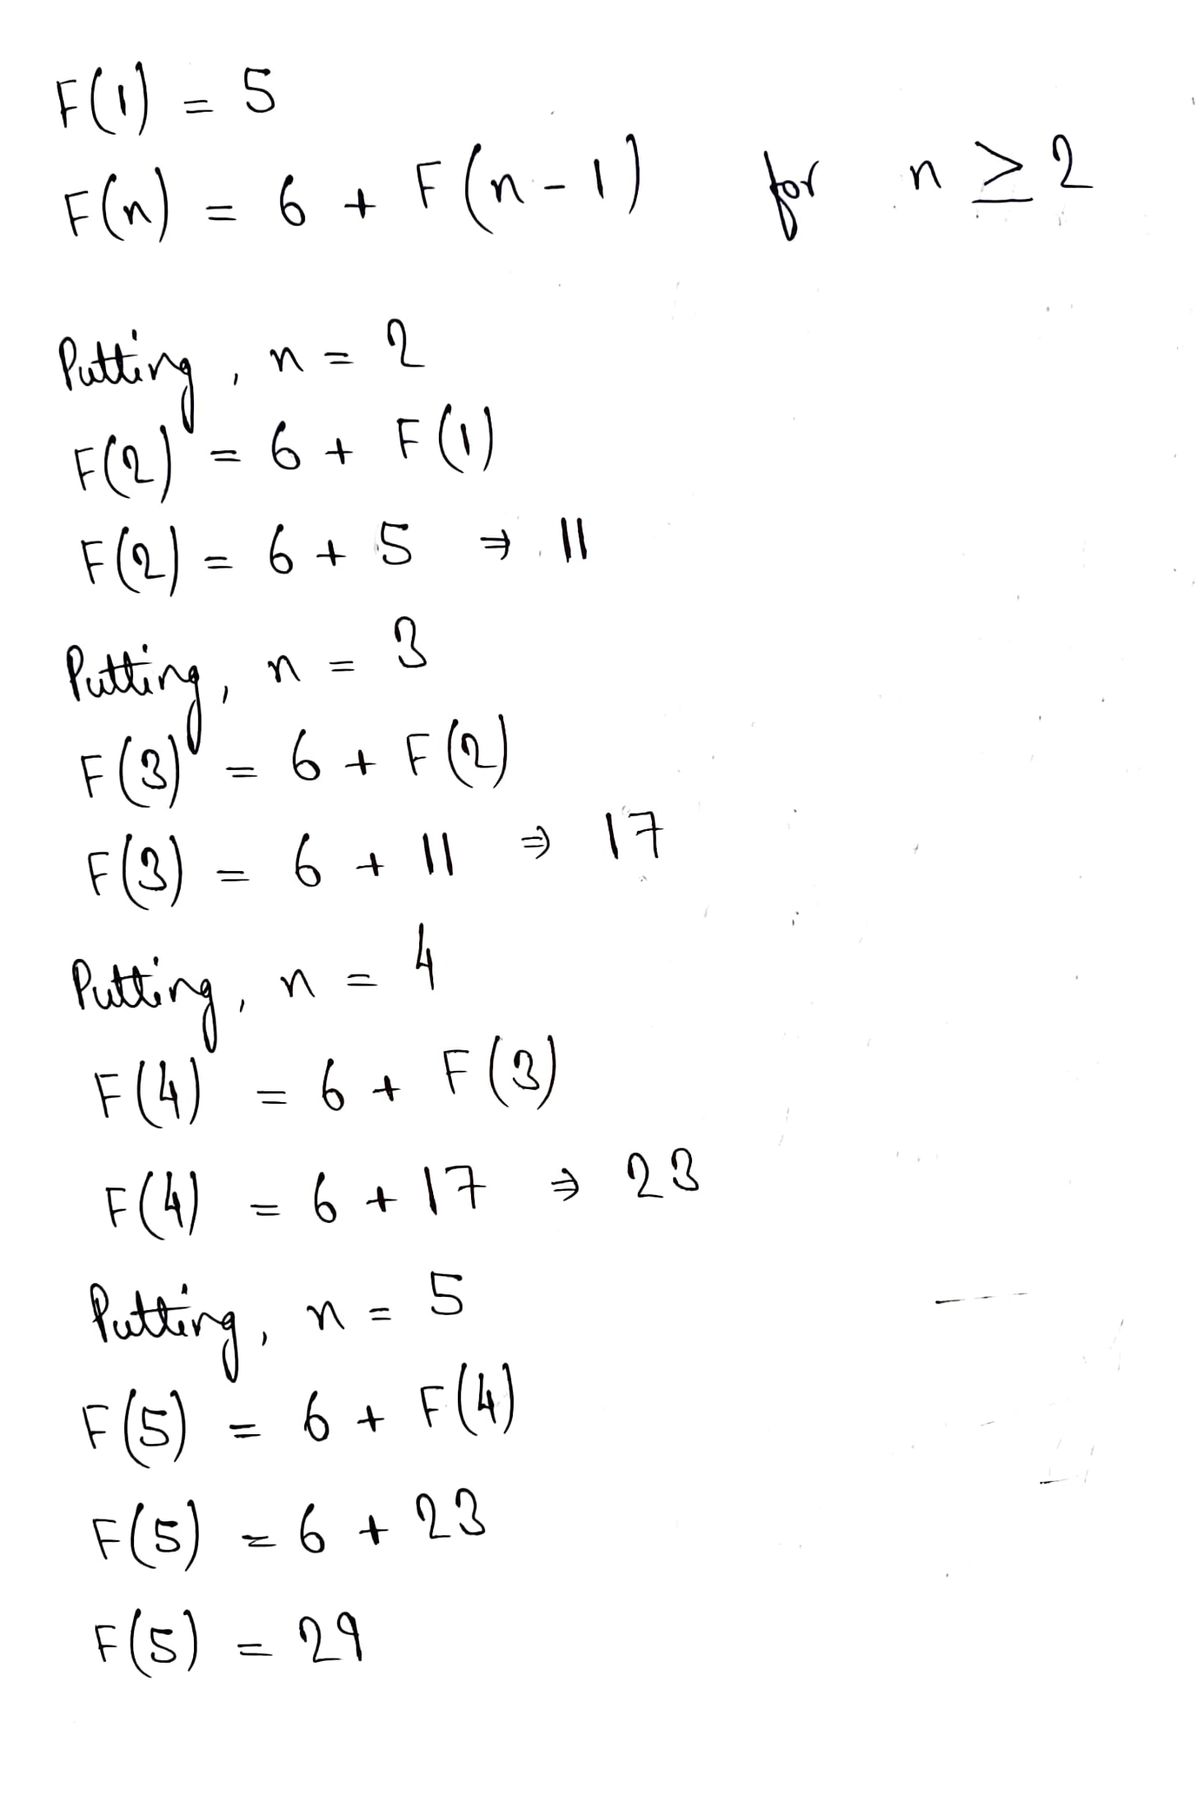 F(1) = 5
F(n) = 6 + F(n-1) for n ≥ 2
Putting, n = 2
F(2) = 6 + F(1)
F(2) = 6 + 5 ⇒ 11
Putting, n = 3
F(3) = 6 + F(2)
F(3) = 6 + 11 ⇒ 17
Putting, n = 4
F(4) = 6 + F(3)
F(4) = 6 + 17 ⇒ 23
Putting, n = 5
F(5) = 6 + F(4)
F(5) = 6 + 23
F(5) = 29